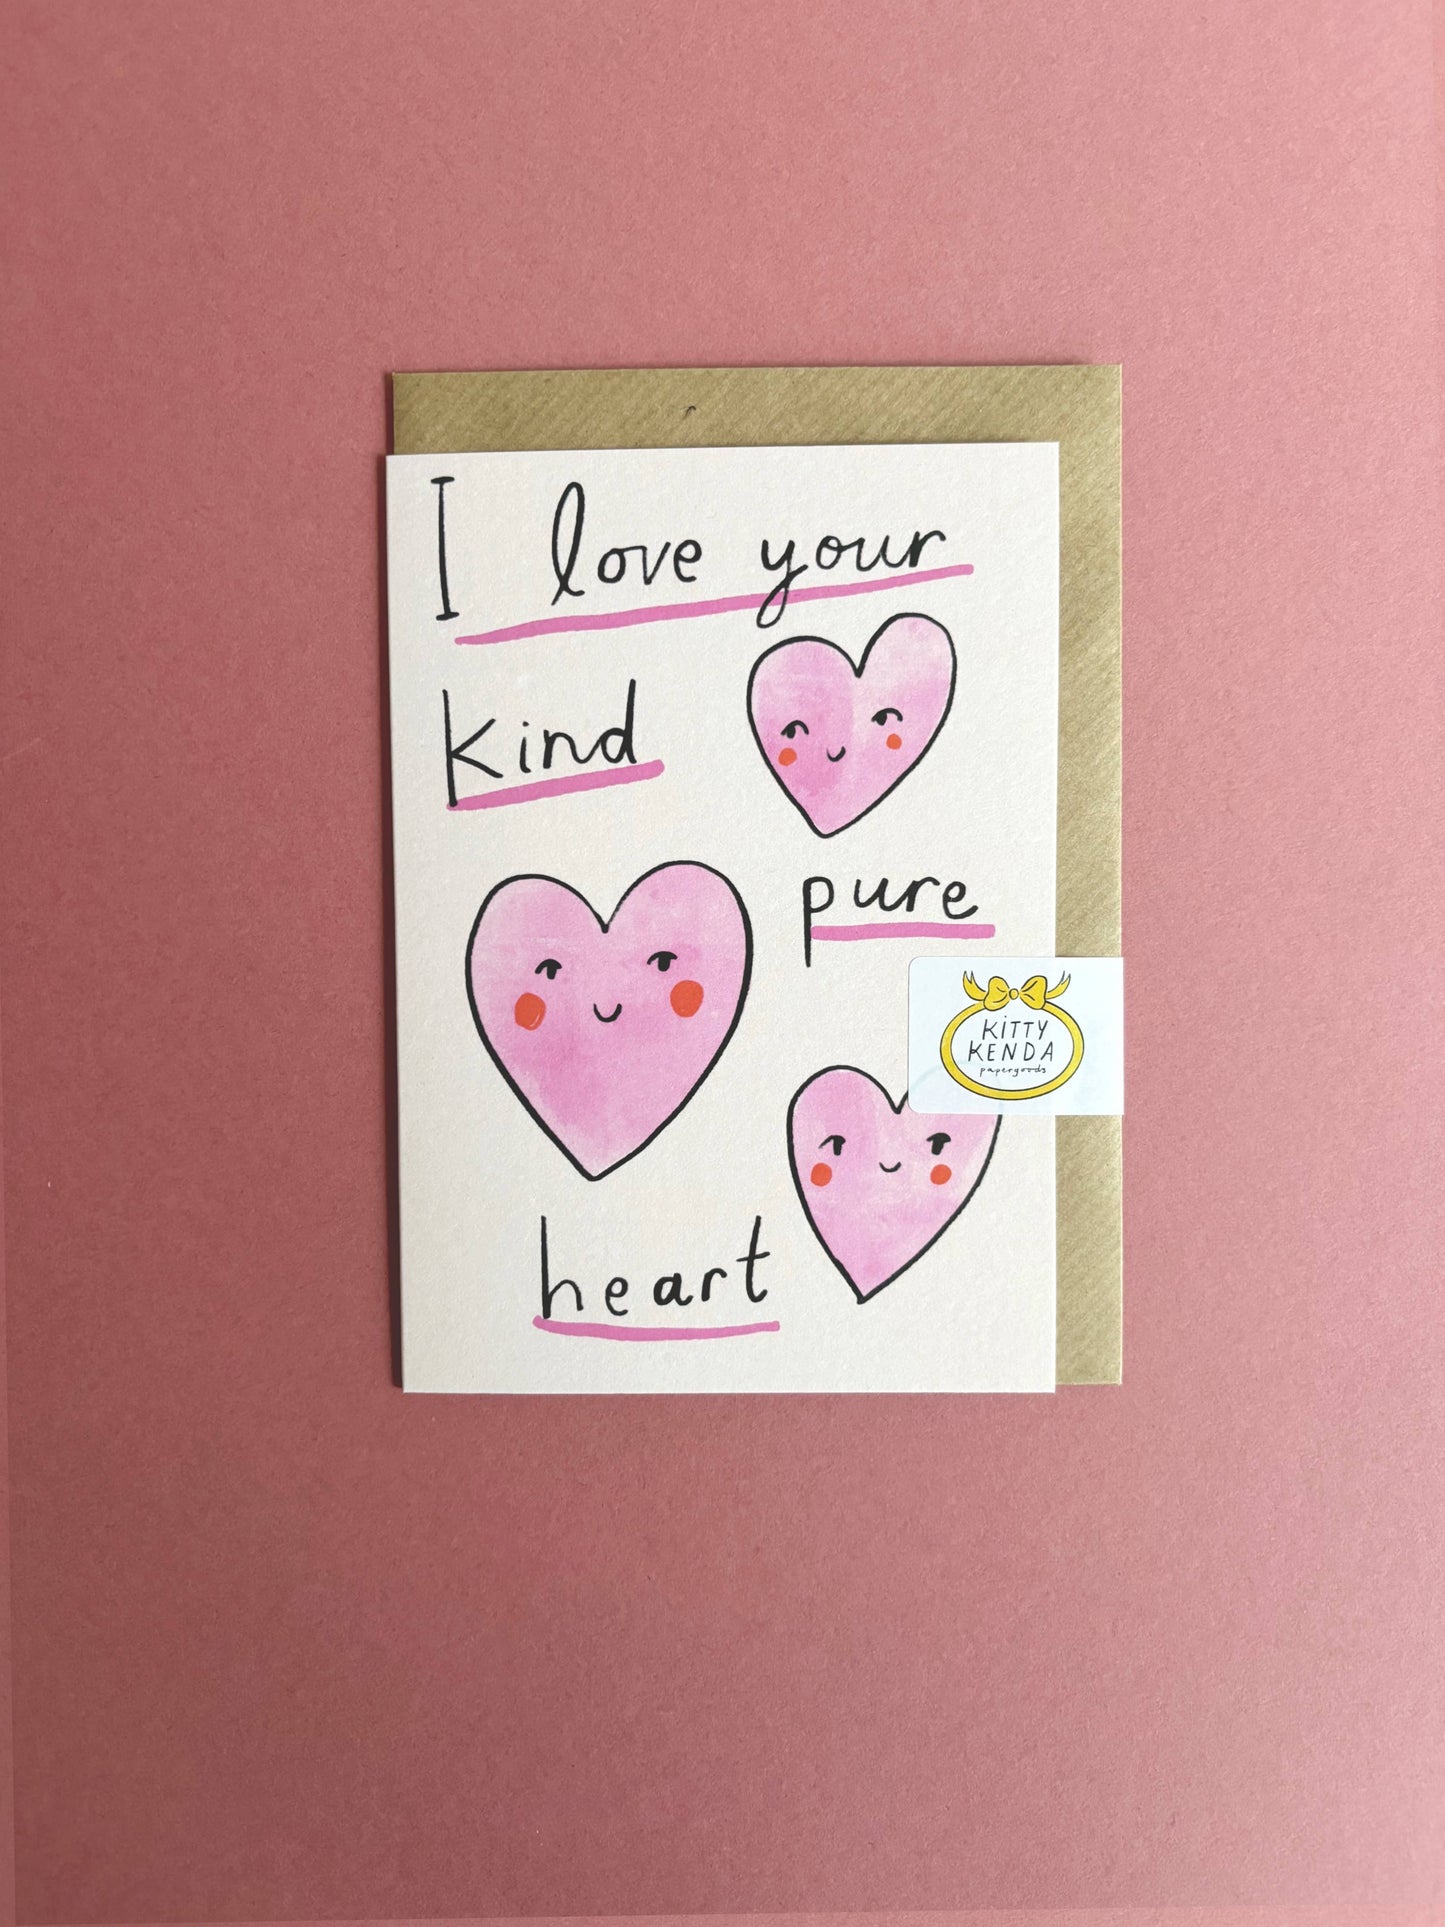 I love your
kind
pure
KITTY
KENDA
papergoods
heart